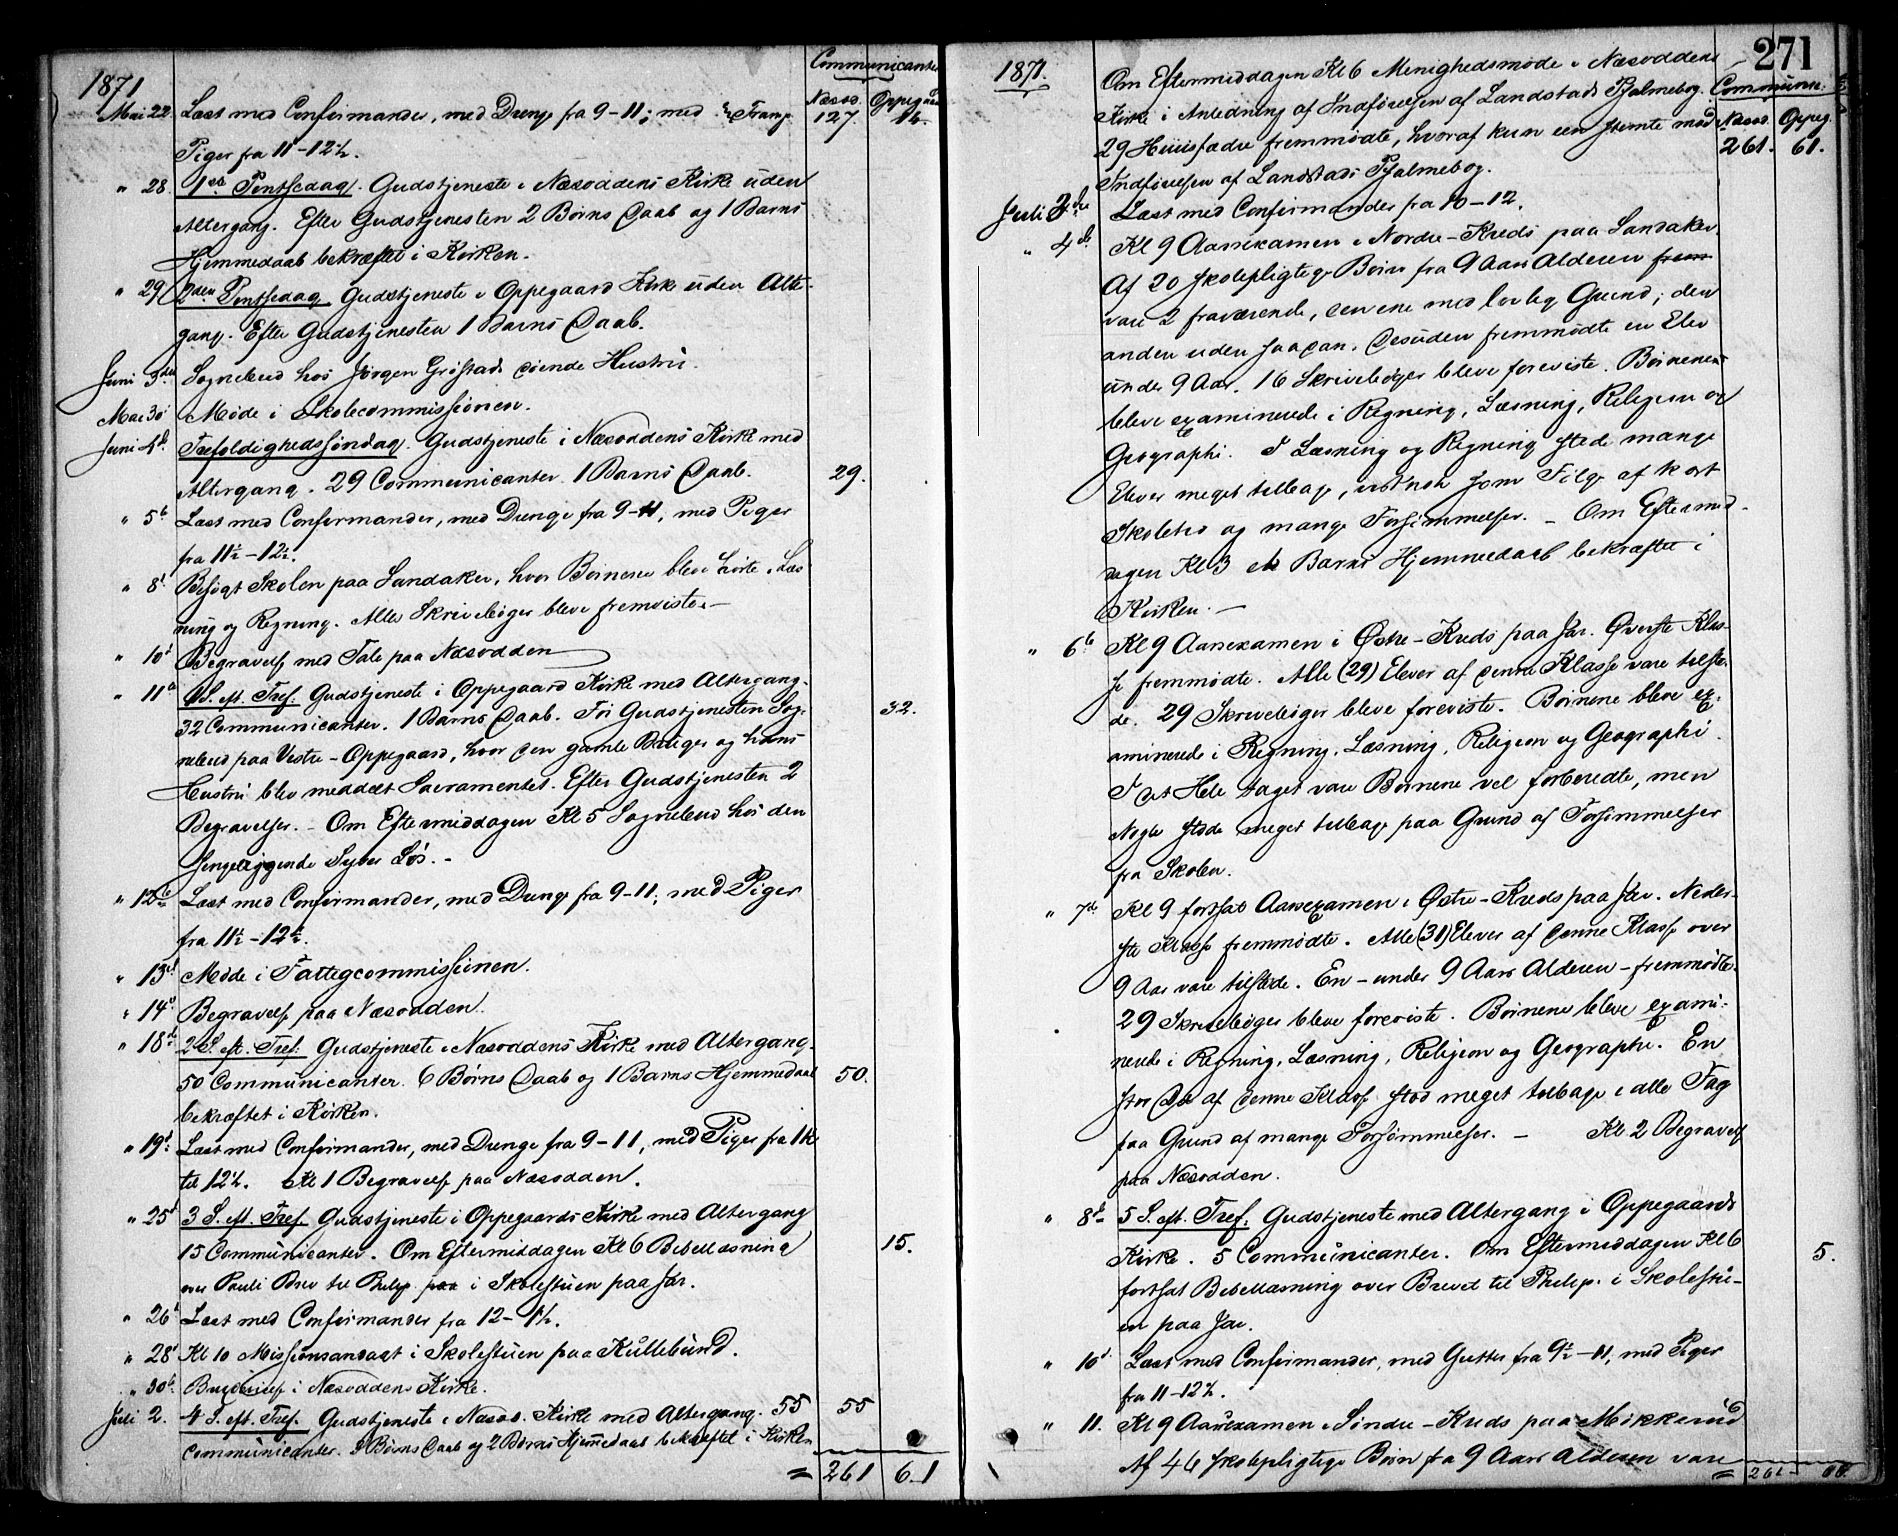 1871
Communicanter
Næsod. Oppegaard
Mai 22. Læst med Confirmander, med Drenge fra 9-11; med 127. 14.
Piger fra 11-12½.
" 28. 1ste Pintsedag. Gudstjeneste i Næsoddens Kirke uden
Altergang. Efter Gudstjenesten 2 Børns Daab og 1 Barns
Hjemmedaab bekræftet i Kirken.
" 29 2den Pintsedag Gudstjeneste i Oppegaard Kirke uden Alter-
gang. Efter Gudstjenesten 1 Barns Daab.
Juni 3die Sognebud hos Jørgen Grøstads døende Hustru.
Mai 30 Møde i Skolecommissionen.
Juni 4d. Trefoldighedssøndag. Gudstjeneste i Næsoddens Kirke med
Altergang. 29 Communicanter. 1 Barns Daab. 29.
" 5t Læst med Confirmander, med Drenge fra 9-11, med Piger
fra 11½-12½.
" 8d. Besøgt Skolen paa Sandaker, hvor Børnene bleve hørte i Læs-
ning og Regning. Alle Skrivebøger bleve fremviste.-
" 10d Begravelse med Tale paa Næsodden
" 11t 1 S. eft. Tref. Gudstjeneste i Oppegaard Kirke med Altergang.
32 Communicanter. 1 Barns Daab. Før Gudstjenesten Sog- 32.
nebud paa Vestre-Oppegaard, hvor den gamle Bruger og hans
Hustru blev meddelt Sacramentet. Efter Gudstjenesten 2
Begravelser. - Om Eftermiddagen Kl 5 Sognebud hos den
sengeliggende Syver Løs. -
" 12te Læst med Confirmander, med Drenge fra 9-11; med Piger
fra 11½-12½.
" 13d Møde i Fattigcommissionen.
" 14d Begravelse paa Næsodden.
" 18d. 2 S. eft. Tref. Gudstjeneste i Næsoddens Kirke med Altergang.
50 Communicanter. 6 Børns Daab og 1 Barns Hjemmedaab 50.
bekræftet i Kirken.
" 19d. Læst med Confirmander, med Drenge fra 9-11, med Piger fra 11½
til 12½. Kl 1 Begravelse paa Næsodden.
" 25d 3 S. eft. Tref. Gudstjeneste i Oppegaards Kirke med Altergang
15 Communicanter. Om Eftermiddagen Kl 6 Bibellæsning 15.
over Pauli Brev til Philip. paa i Skolestuen paa Jar.
" 26d Læst med Confirmander fra 12-1½.
" 28d Kl 10 Missionsandagt i Skolestuen paa Kullebund.
" 30t. Brudevielse i Næsoddens Kirke.
Juli 2. 4 S. eft. Tref. Gudstjeneste i Næsod. Kirke med Altergang. 55 55
Communicanter. 3 Børns Daab og 2 Børns Hjemmedaab bekræftet i Kirken
= 261 61
271
1871.
Communic.
Næsod. Oppeg.
261. 61.
Om Eftermiddagen Kl 6 Menighedsmøde i Næsoddens
Kirke i Anledning af Indførelsen af Landstads Psalmebog.
29 Huusfædre fremmødte, hvoraf kun een stemte mod
Indførelsen af Landstads Psalmebog.
Juli 3die Læst med Confirmander fra 10-12.
" 4de Kl 9 Aarsexamen i Nordre-Kreds paa Sandaker.
Af 20 skolepligtige Børn fra 9 Aars Alderen frem
vare 2 fraværende, den ene med lovlig Grund; den
anden uden saadan. Desuden fremmødte en Elev
under 9 Aar. 16 Skrivebøger bleve foreviste. Børnene
bleve examinerede i Regning, Læsning, Religion og
Geographi. I Læsning og Regning stode mange
Elever meget tilbage, vistnok som Følge af kort
Skoletid og mange Forsømmelser. - Om Eftermid-
dagen Kl 3 et Barns Hjemmedaab bekræftet i
Kirken. -
" 6t Kl 9 Aarsexamen i Østre-Kreds paa Jar. Øverste Klas-
se fremmødte. Alle (29) Elever af denne Klasse vare tilste-
de. 29 Skrivebøger bleve foreviste. Børnene bleve ex-
aminerede i Regning, Læsning, Religion og Geographi.
I det Hele taget vare Børnene vel forberedte, men
Nogle stode meget tilbage paa Grund af Forsømmelser
fra Skolen.
" 7d Kl 9 fortsat Aarsexamen i Østre-Kreds paa Jar. Neder-
ste Klasse fremmødte. Alle (31) Elever af denne Klasse over
9 Aar vare tilstede. En - under 9 Aars Alderen - fremmødte.
29 Skrivebøger bleve foreviste. Børnene bleve exami-
nerede i Regning, Læsning, Religion og Geographi. En
stor Del af denne Klasse stod meget tilbage i alle Fag
paa Grund af mange Forsømmelser. - Kl 2 Begravelse
paa Næsodden.
" 8d- 5 S. eft. Tref. Gudstjeneste med Altergang i Oppegaards
Kirke. 5 Communicanter. Om Eftermiddagen Kl 6 5.
fortsat Bibellæsning over Brevet til Philip. i Skolestu-
en paa Jar.
" 10d. Læst med Confirmander, med Gutter fra 9½-11, med Piger
fra 11-12½.
" 11. Kl 9 Aarsexamen i Søndre-Kreds paa Møkkerud
Af 46 skolepligtige Børn fra 9 Aars Alderen vare
= 261 66.